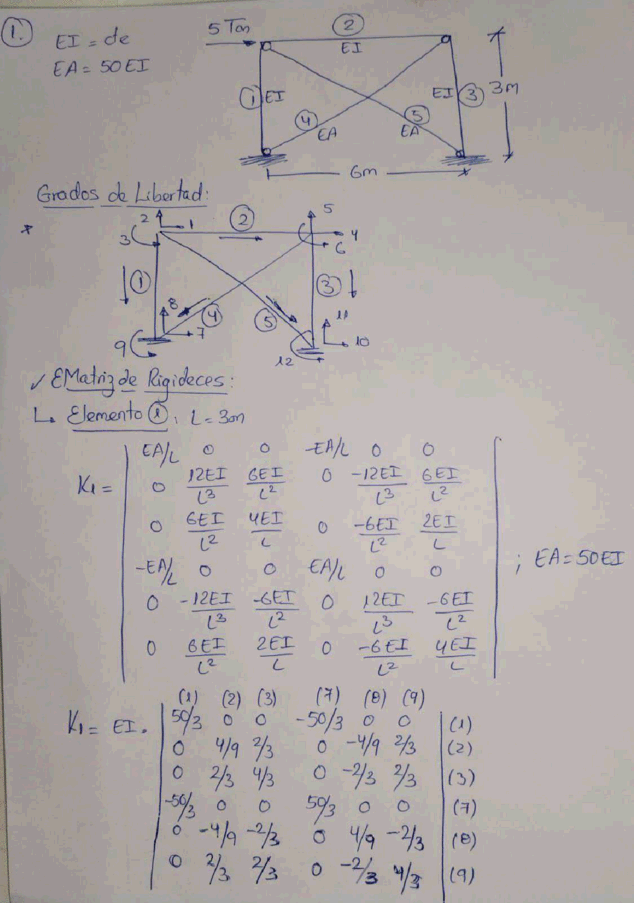 1.
EI = de
EA = 50EI
5 Ton
2
EI
1 EI
EI 3
3m
4
EA
5
EA
6m
Grados de Libertad:
*
2
1
3
2
5
4
6
1
3
8
4
7
5
11
10
9
12
✓ EMatriz de Rigideces:
↳ Elemento 1; L = 3m
K1 =
EA/L 0 0 -EA/L 0 0
0 12EI/L³ 6EI/L² 0 -12EI/L³ 6EI/L²
0 6EI/L² 4EI/L 0 -6EI/L² 2EI/L
-EA/L 0 0 EA/L 0 0
0 -12EI/L³ -6EI/L² 0 12EI/L³ -6EI/L²
0 6EI/L² 2EI/L 0 -6EI/L² 4EI/L
; EA = 50EI
(1) (2) (3) (7) (8) (9)
K1 = EI.
50/3 0 0 -50/3 0 0 (1)
0 4/9 2/3 0 -4/9 2/3 (2)
0 2/3 4/3 0 -2/3 2/3 (3)
-50/3 0 0 50/3 0 0 (7)
0 -4/9 -2/3 0 4/9 -2/3 (8)
0 2/3 2/3 0 -2/3 4/3 (9)